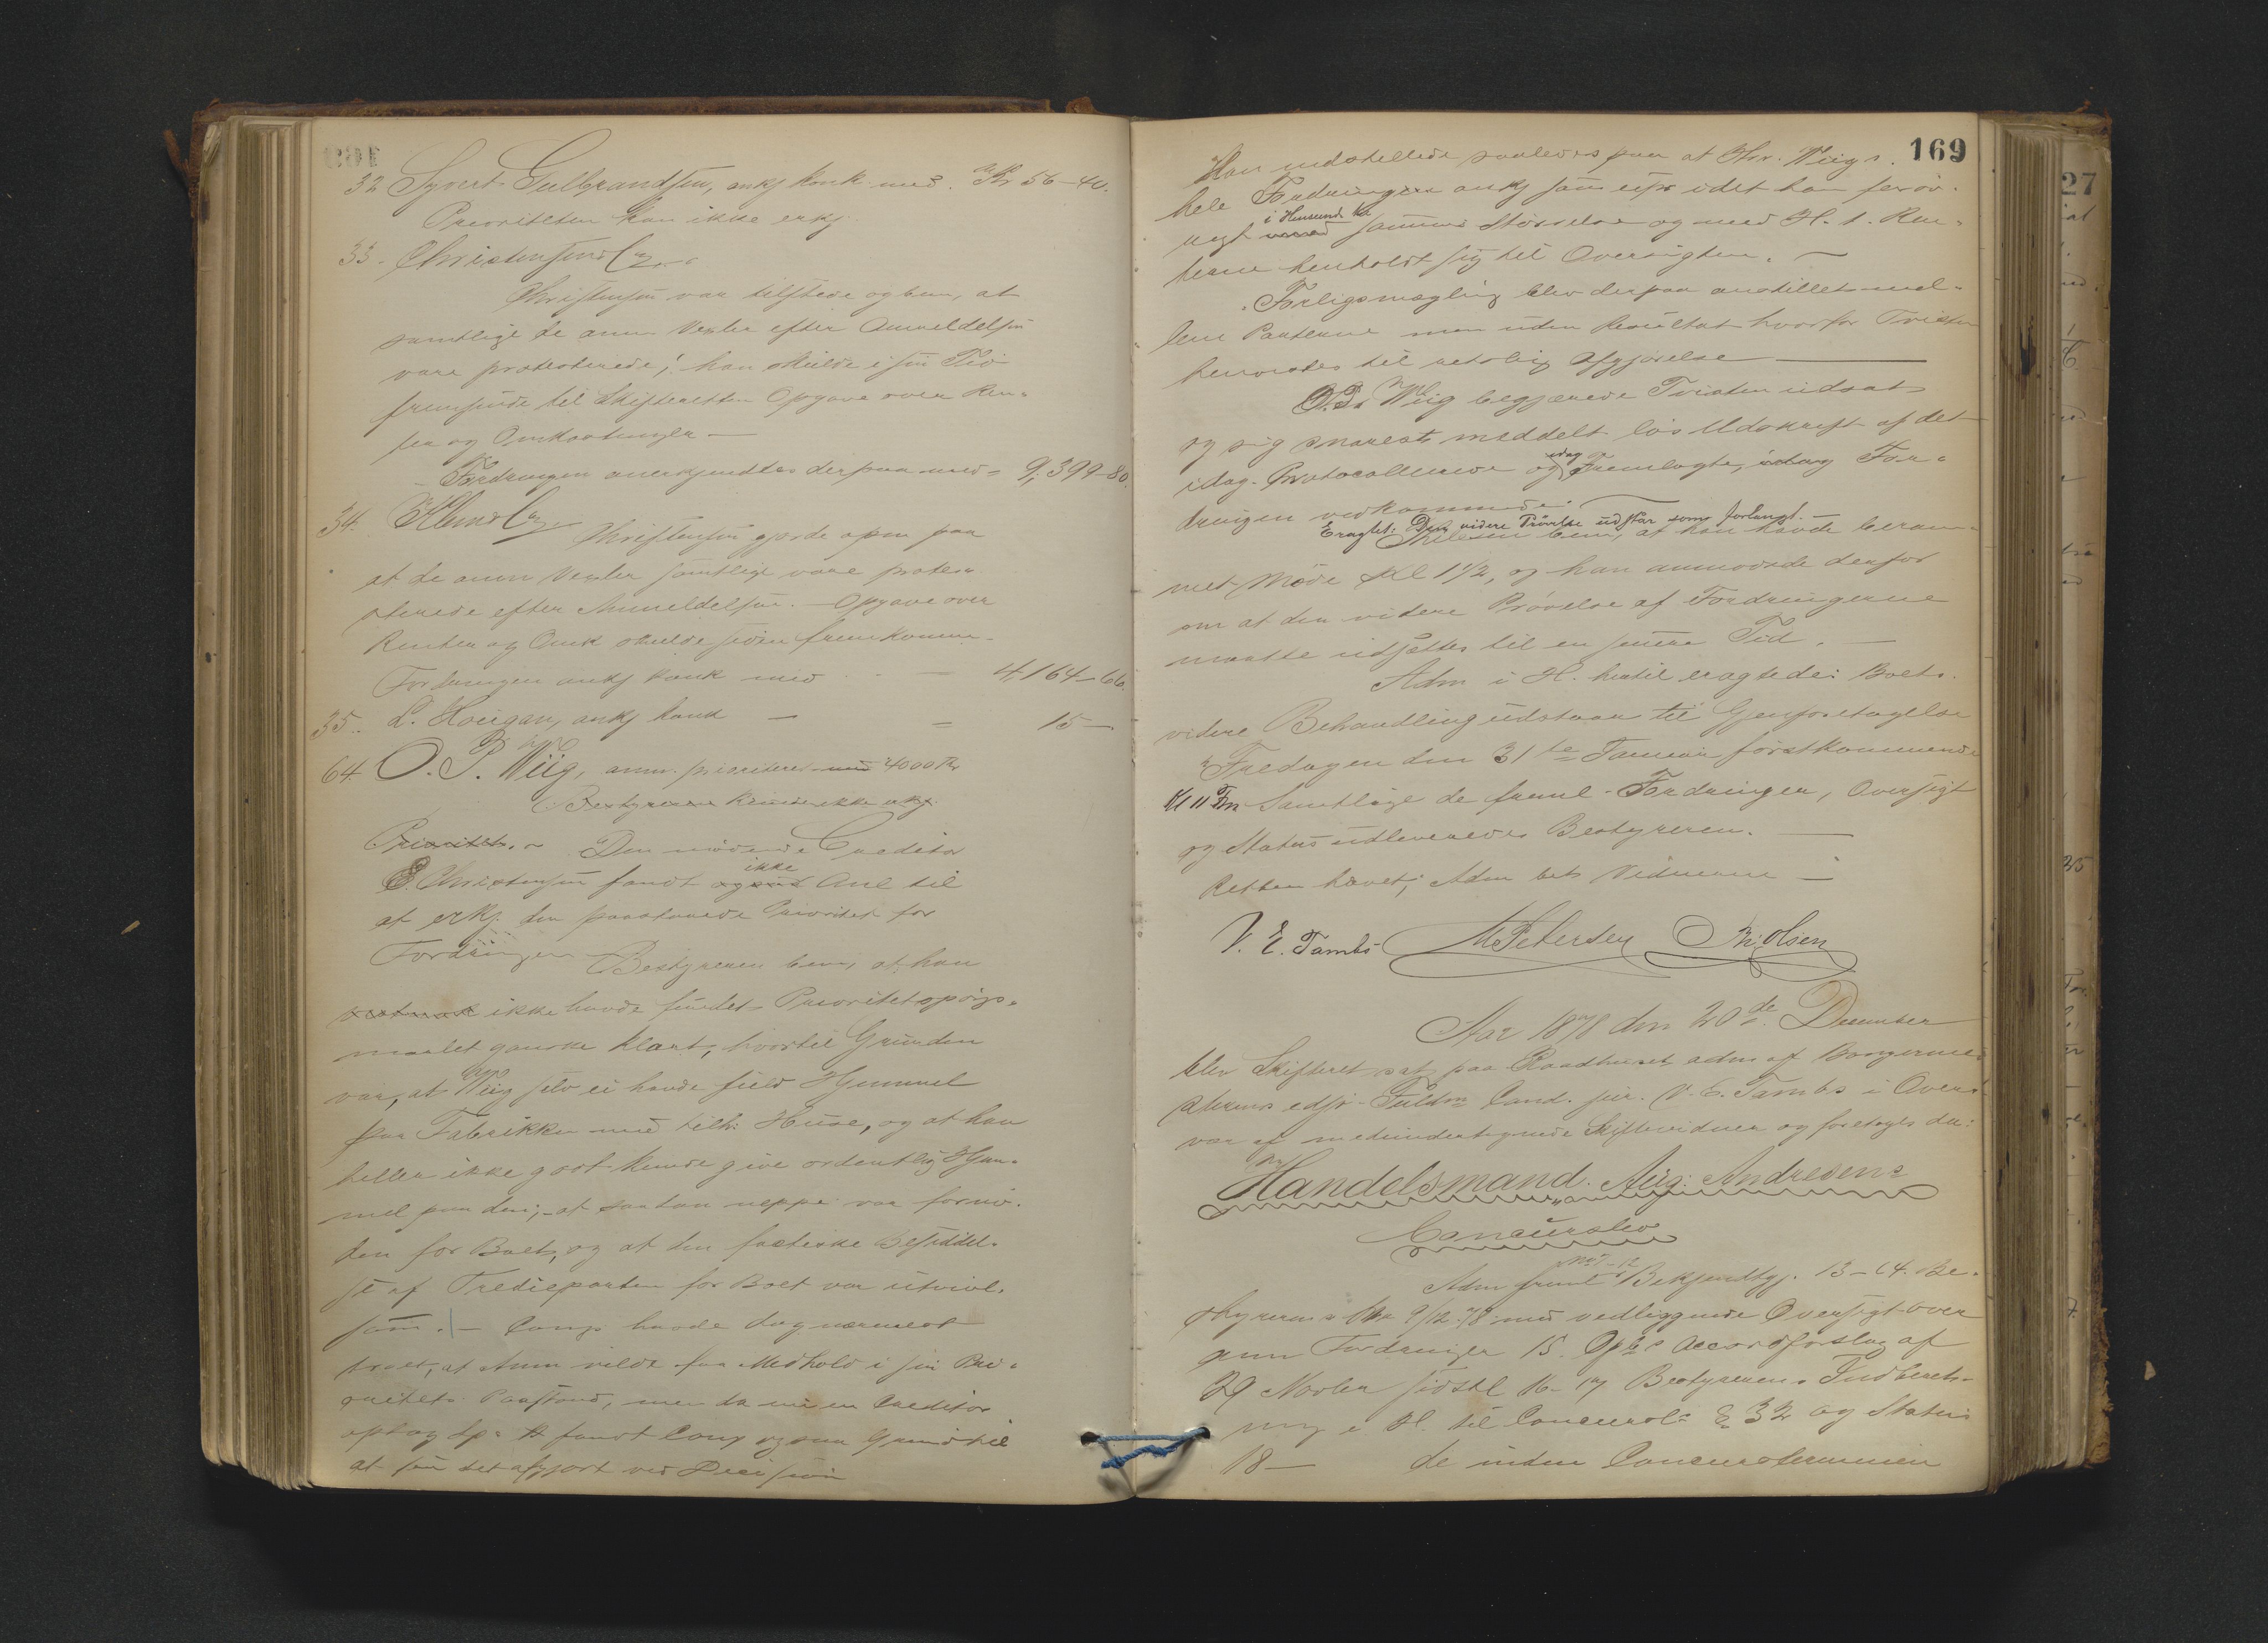 32 Syvert Gulbrandsen, ankj konk med. Kr 56-40.
Prioriteten kan ikke erkj.
33. Christensen & Co.
Christensen var tilstede og bem, at
samtlige de anm Vexler efter Anmeldelsen
vare protesterede; han skulde i sin Tid
fremsende til Skifteretten Opgave over Ren-
ter og Omkostninger —
Fordringen anerkjendtes derpaa med = 9,399-80.
34. & Co. Christensen gjorde opm paa
at de anm Vexler samtlige vare prote-
sterede efter Anmeldelsen. — Opgave over
Renter og Omk skulde siden fremkomme.
Fordringen ankj konk med — 4,164-66.
35. L. Hougan, ankj konk — = 15 —
64. O. P. Wiig, anm. prioriteret med 4000 Kr
Bestyreren kunde ikke erkj.
Prioritet. — Den mødende Creditor
E. Christensen fandt ikke Anl til
at erkj. den paastaaede Prioritet for
Fordringen Bestyreren bem, at han
ikke havde fundet Prioritetsspørgs-
maalet ganske klart, hvortil Grunden
var, at Wiig selv ei havde fuld Hjemmel
paa Fabrikken med tilh. Huse, og at han
heller ikke godt kunde give ordentlig Hjem-
mel paa den; at saadan neppe var fornø-
den for Boet, og at den factiske Besiddel-
se af Tredieparten for Boet var utvivl-
som. — Comp havde dog nærmest
troet, at Anm vilde faa Medhold i sin Pri-
oritets Paastand, men da nu en Creditor
optog Sp. fandt Comp ogsaa Grund til
at faa det afgjort ved Decision
169
Han indstillede saaledes paa at Hr. Wiigs
hele Fordringen ankj som idet han forøv-
rigt i Henseende til sammes Størrelse og med H. t. Ren-
terne henholdt sig til Oversigten. —
Forligsmægling blev derpaa anstillet mel-
lem Parterne men uden Resultat hvorfor Tvisten
henvistes til retslig Afgjørelse —
O. P. Wiig begjærede Tvisten udsat
og sig snarest meddelt løs Udskrift af det
idag Protocollerede og idag Fremlagte, idag For-
dringen vedkommende.
Eragtet: Den videre Prøvelse udstaar som forlangt. —
bem, at han havde beram-
met Møde Kl 1½, og han anmodede derfor
om at den videre Prøvelse af Fordringerne
maatte udsættes til en senere Tid. —
Adm i H. hertil eragtede: Boets
videre Behandling udstaar til Gjenforetagelse
Fredagen den 31te Januar førstkommende
Kl 11 Fm Samtlige de freml Fordringer, Oversigt
og Status udleveredes Bestyreren. —
Retten hævet; Adm bet Vidnerne —
V. E. Tambs M Petersen Olsen
Aar 1878 den 20de December
blev Skifteret sat paa Raadhuset adm af Borgerme-
sterens edsv. Fuldm Cand. jur. V. E. Tambs i Over-
vær af medundertegnede Skiftevidner og foretoges da:
Handelsmand Aug. Andresens
Concursbo
Adm freml No 1-12 Bekjendtgj. 13-14. Be-
styrerens Skr 9/12 78 med vedliggende Oversigt over
anm Fordringer 15. Accordforslag af
29 Novbr sidstl 16-17 Bestyrerens Indberet-
ning i H. til Concursl. § 32 og Status
18 — de inden Concursterminen